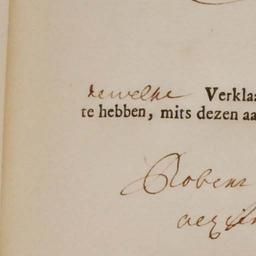 dewelke Verkla
te hebben, mits dezen aa
Robens